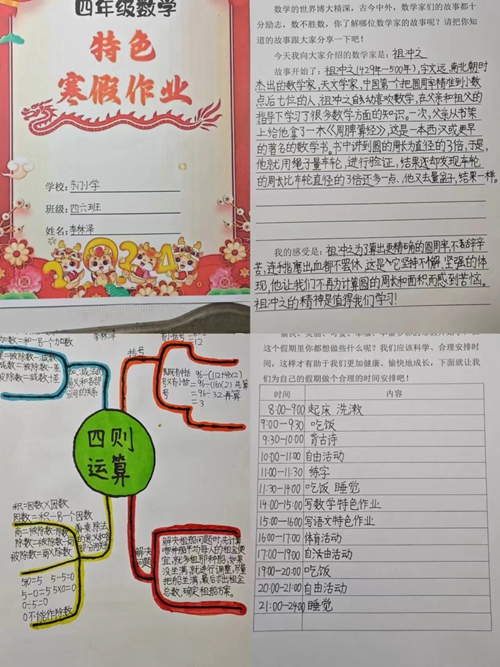 四年级数学
特色
寒假作业
学校:东门小学
班级:四六班
姓名:李林泽
2024
数学的世界博大精深,古今中外,数学家们的故事都十
分励志,数不胜数,你了解哪位数学家的故事呢?请把你知
道的故事跟大家分享一下吧!
今天我向大家介绍的数学家是:祖冲之
故事开始了:祖冲之(429年-500年),字文远,南北朝时
杰出的数学家,天文学家,中国第一个把圆周率精准到小数
点后七位的人,祖冲之自幼喜欢数学,在父亲和祖父的
指导下学习了很多数学方面的知识。一次,父亲从书架
上给他拿了一本《周髀算经》,这是一本西汉或更早
的著名的数学书。书中讲到圆的周长为直径的3倍,于是,
他就用绳子量车轮,进行验证,结果还却发现车轮
的周长比车轮直径的3倍还多一点,他又去量盆子,结果一样。
我的感受是:祖冲之为了算出更精确的圆周率,不惜辛
苦,连手指磨出血都不罢休,这是他坚持不懈,坚强的体
现,他让我们不再为计算圆的周长和面积而感到苦恼。
祖冲之的精神是值得我们学习!
李林泽
括号
=12
96÷(12+4×2)
=96÷(16×2)
=96÷32
=3
四则
运算
积=因数×因数
因数=积÷另一个因数
5-5=0
5-0=5 5×0=0
0÷5=0
0不能作除数
解决问题
解决租船问题时,先计算
哪种船平均每人的租金便
宜,就多租那种船,如果
没坐满,就进行调整,尽量
把船坐满,最后求出租金
总数,确定租船方案。
这个假期里你都想做些什么呢?我们应该科学、合理安排时
间,这样才有助于我们更加健康、愉快地成长,下面就让我
们为自己的假期做个合理的时间安排吧!
时间 内容
8:00-9:00 起床 洗漱
9:00-9:30 吃饭
9:30-10:00 背古诗
10:00-11:00 自由活动
11:00-11:30 练字
11:30-14:00 吃饭 睡觉
14:00-15:00 写数学特色作业
15:00-16:00 写语文特色作业
16:00-17:00 体育活动
17:00-19:00 自由活动
19:00-20:00 吃饭
20:00-21:00 自由活动
21:00-24:00 睡觉